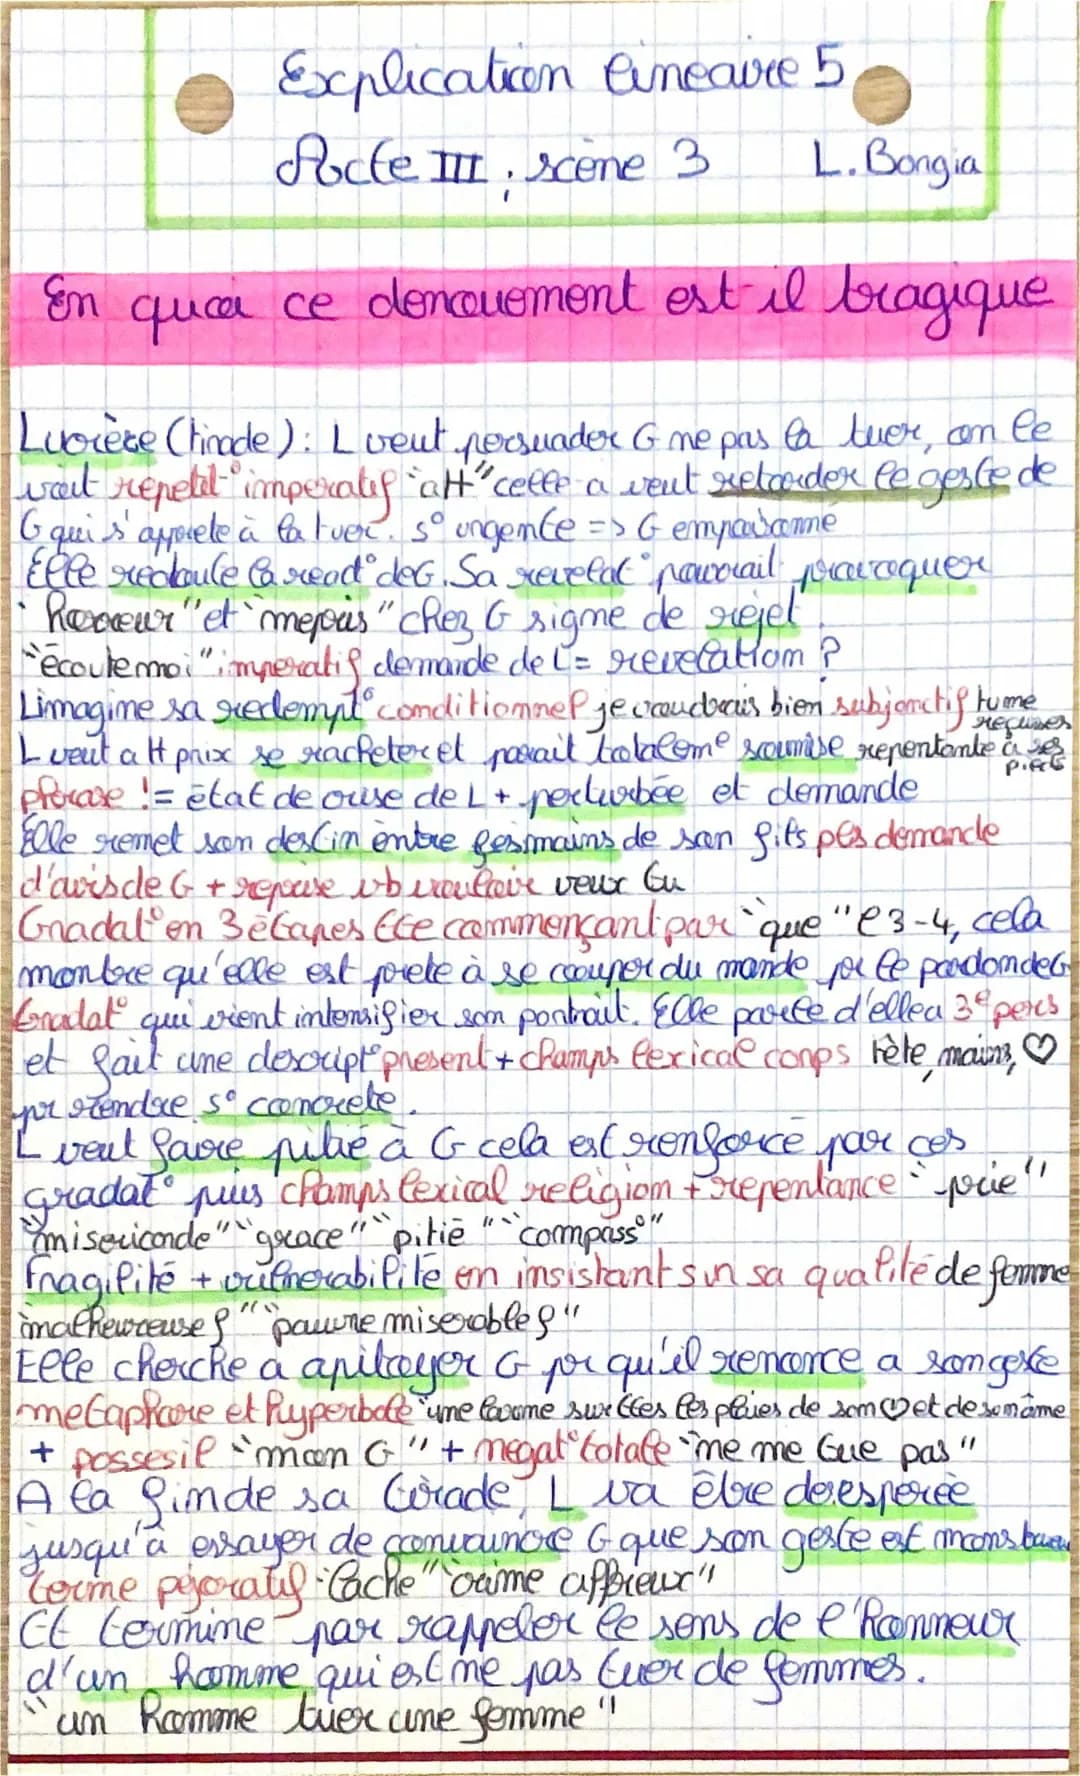 Explication lineaire 5
Acte III, scène 3 L. Borgia
En quoi ce denouement est-il tragique
Lucrèce (tirade) : L veut persuader G ne pas la tuer, on le
voit repetit° imperatif "att" celle-a veut retarder le geste de
G qui s'apprete à la tuer. s° urgence => G empoisonne
Elle redoute la react° de G. Sa revelat° pourrait provoquer
"horreur" et "mepris" chez G signe de rejet.
"écoute moi" imperatif demande de L = revelation ?
L imagine sa redempt° conditionnel je voudrais bien subjonctif tu me
recusses
L veut a tt prix se racheter et parait totalemt soumise repentante à ses
pieds
phrase != état de crise de L + perturbée et demande
Elle remet son destin entre les mains de son fils pls demande
d'avis de G + repose vb vouloir veux tu
Gradat° en 3 étapes tte commençant par "que" l 3-4, cela
montre qu'elle est prete à se couper du monde pr le pardon de G
Gradat° qui vient intensifier son portrait. Elle parle d'elle a 3e pers
et fait une descript° present + champs lexical corps tête, mains, ♡
pr rendre s° concrete.
L veut faire pitié à G cela est renforcé par ces
gradat° puis champs lexical religion + repentance "prie"
"misericorde" "grace" "pitié" "compass°"
Fragilité + vulnerabilité en insistant sur sa qualité de femme
"malheureuse f" "pauvre miserable f"
Elle cherche a apitoyer G pr qu'il renonce a son geste
metaphore et hyperbole "une larme sur ttes les plaies de son ♡ et de son âme
+ possesif "mon G" + negat° totale "ne me tue pas"
A la fin de sa tirade, L va être desesperée
jusqu'à essayer de convaincre G que son geste est monstrueu
terme péjoratif : "lache" "crime affreux"
Et termine par rappeler le sens de l'honneur
d'un homme qui est ne pas tuer de femmes.
"un homme tuer une femme"